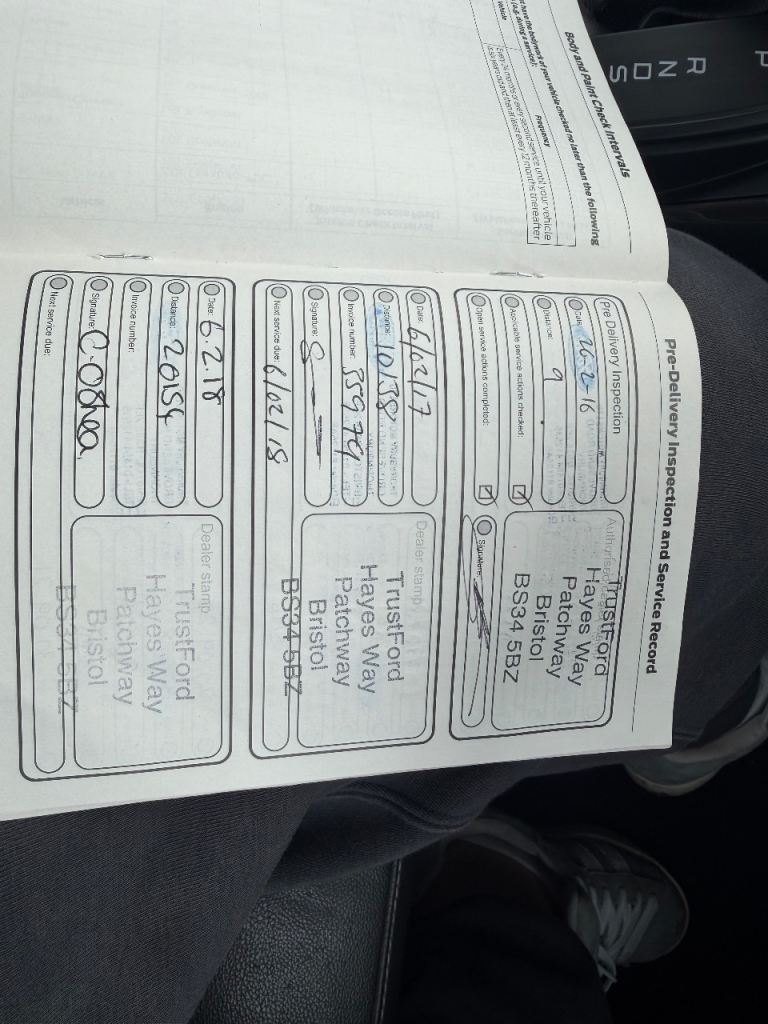 P
R
N
D
S
Body and Paint Check Intervals
have the bodywork of your vehicle checked no later than the following
(e.g. during a service):
vehicle
Frequency
Every 24 months or every second service until your vehicle
is six years old and then at least every 12 months thereafter
Pre-Delivery Inspection and Service Record
Pre Delivery Inspection
Date: 26-2-16
Distance: 9
Applicable service actions checked:
Open service actions completed:
TrustFord
Hayes Way
Patchway
Bristol
BS34 5BZ
Signature:
Date: 6/02/17
Distance: 10138
Invoice number:
Signature:
Next service due: 6/02/18
Dealer stamp
TrustFord
Hayes Way
Patchway
Bristol
BS34 5BZ
Date: 6.2.18
Distance: 20154
Invoice number:
Signature: C-OShea
Next service due:
Dealer stamp
TrustFord
Hayes Way
Patchway
Bristol
BS34 5BZ